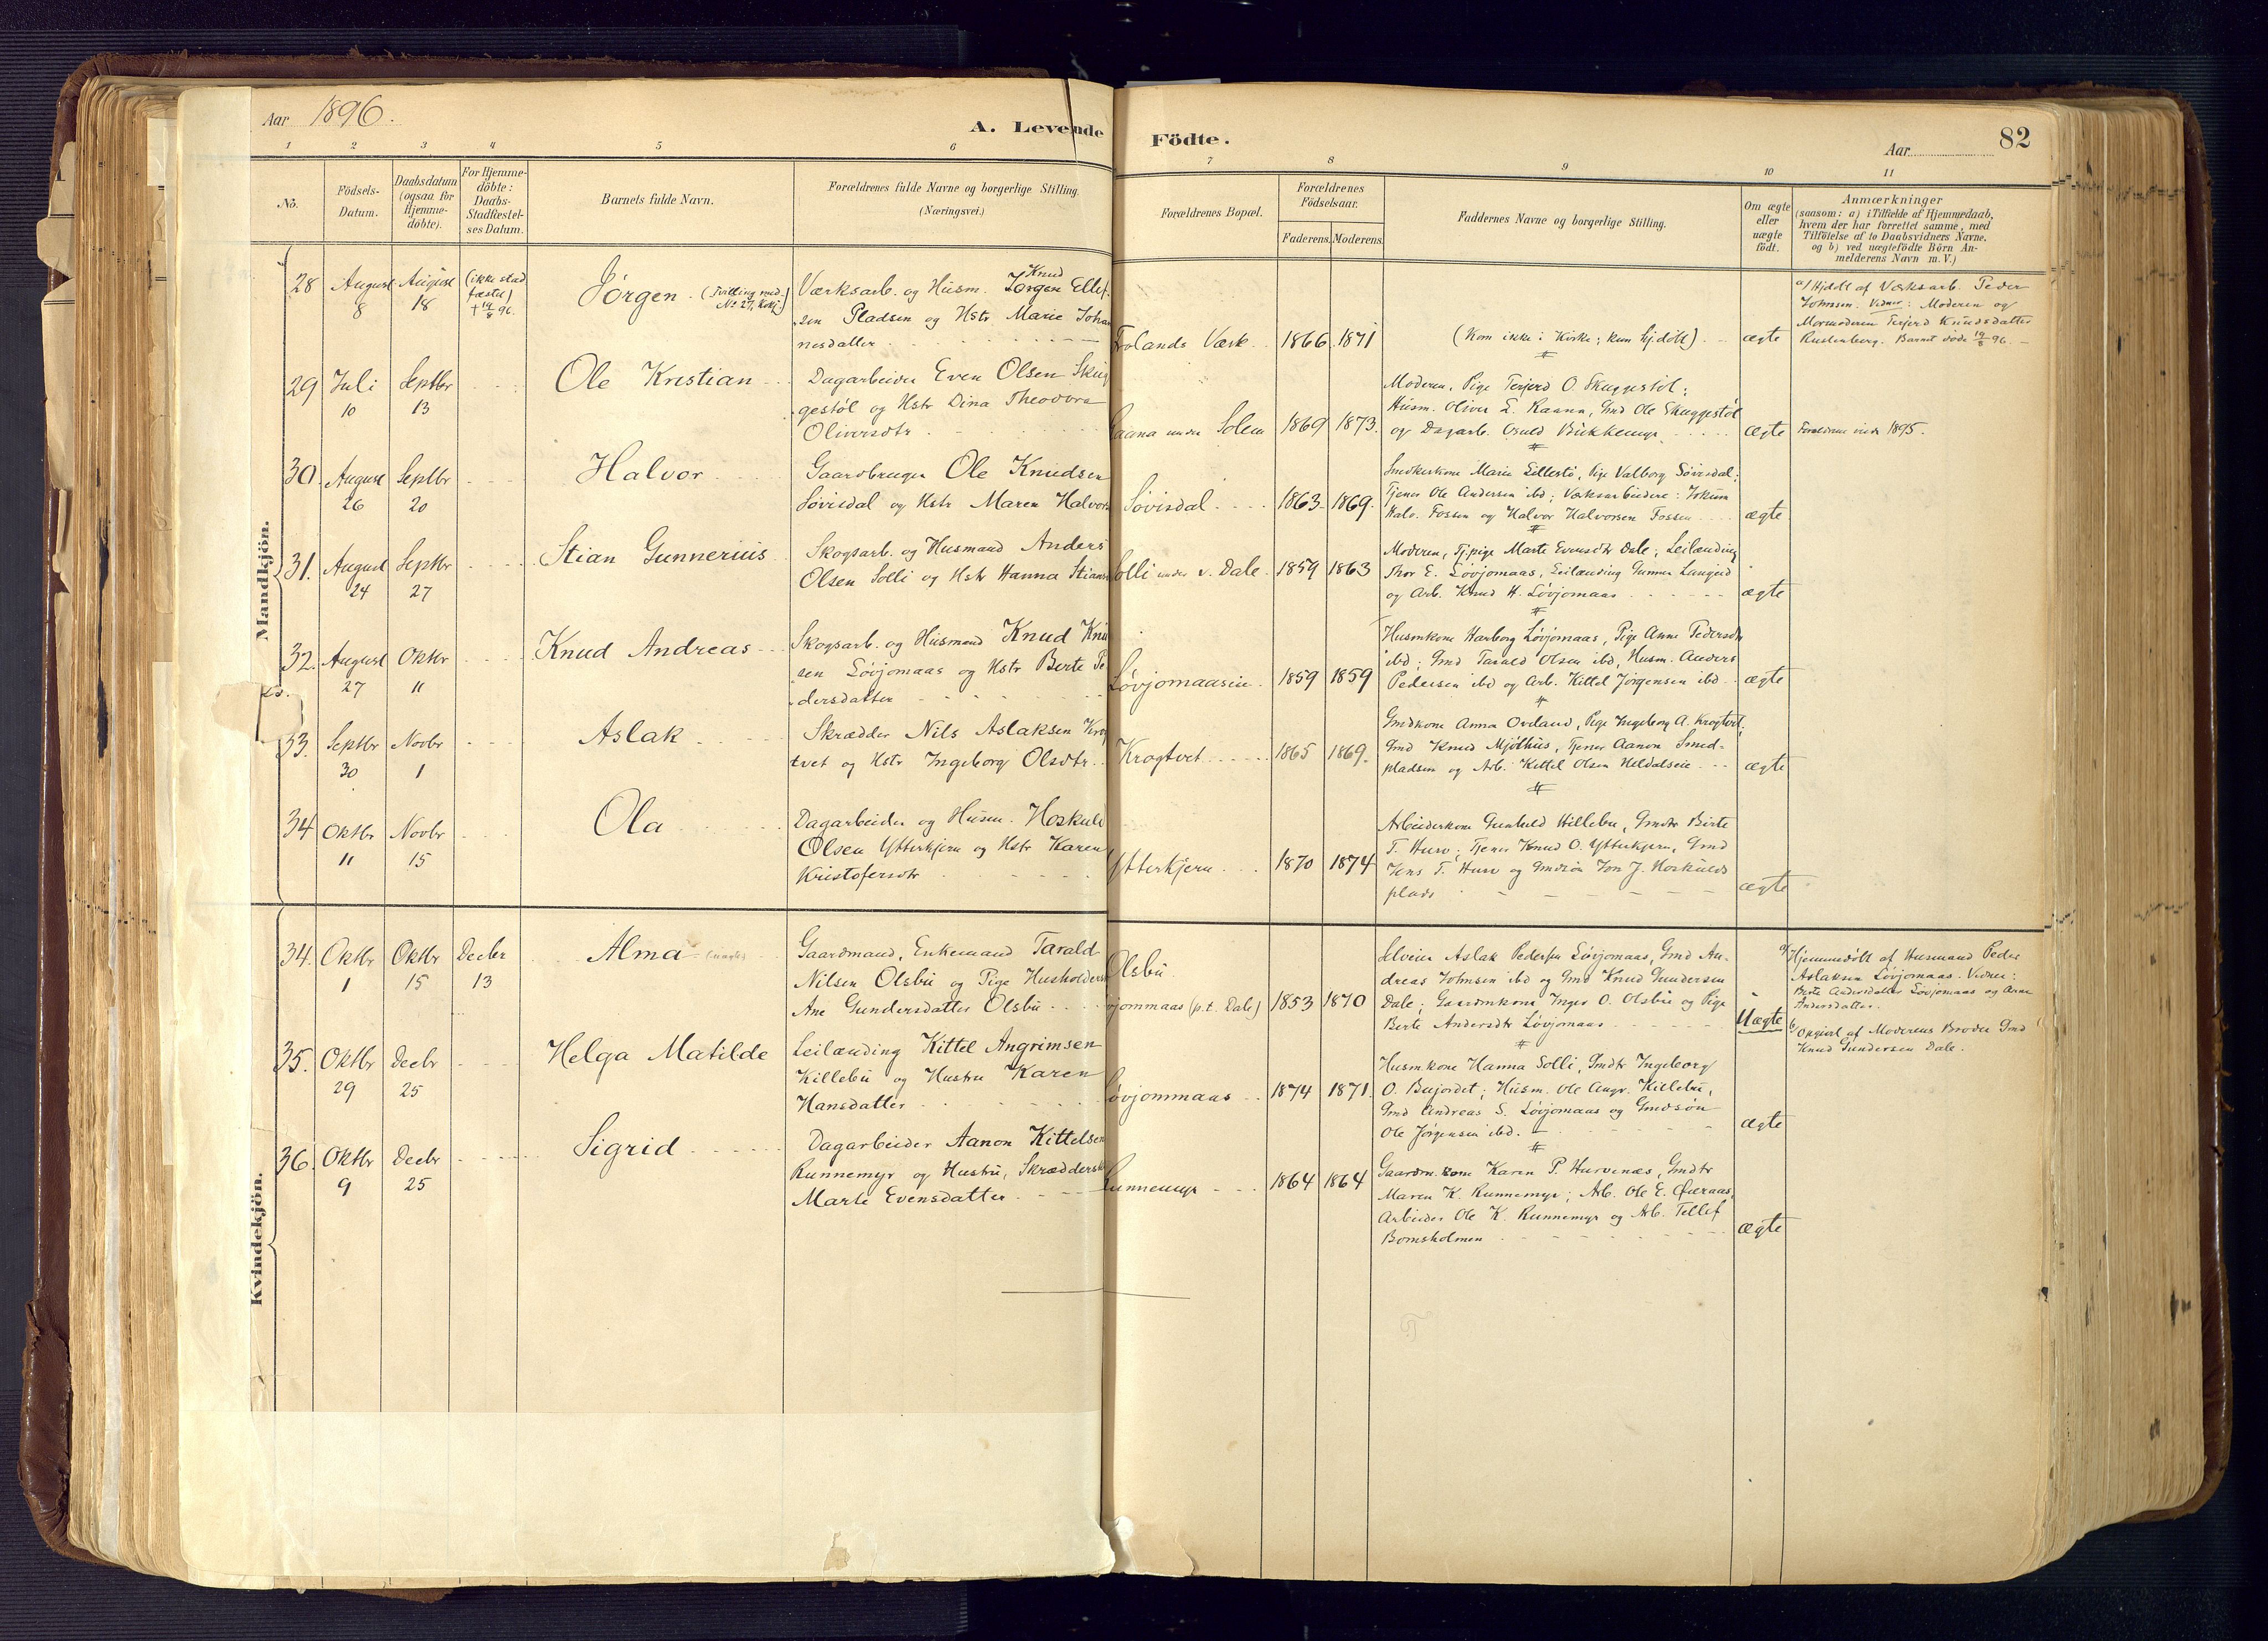 Aar 1896.
A. Levende Födte.
82
Aar
1 2 3 4 5 6 7 8 9 10 11
No.
Födsels-
Datum.
Daabsdatum
(ogsaa for
Hjemme-
döbte).
For Hjemme-
döbte:
Daabs-
Stadfæstel-
ses Datum.
Barnets fulde Navn.
Forældrenes fulde Navne og borgerlige Stilling.
(Næringsvei.)
Forældrenes Bopæl.
Forældrenes
Födselsaar.
Faderens. Moderens.
Faddernes Navne og borgerlige Stilling.
Om ægte
eller
uægte
födt.
Anmærkninger
(saasom: a) i Tilfælde af Hjemmedaab,
hvem der har forrettet samme, med
Tilföielse af to Daabsvidners Navne,
og b) ved uægtefödte Börn An-
melderens Navn m. V.)
Mandkjön.
28 August 8 August 18 (ikke stad
fæstet)
+ 19/8 96.
Jörgen. (Tvilling med
No 27, Kvkj.)
Værksarb. og Husm. Knud Jörgen Ellef-
sen Pladsen og Hstr Marie Johan
nesdatter
Frolands Værk 1866 1871
(Kom ikke i Kirke; kun hj.döbt)
ægte
a/ Hjdöbt af Værksarb. Peder
Johnsen. Vidner: Moderen og
Mormoderen Terjerd Knudsdatter
Rustenberg. Barnet döde 19/8 96.
29 Juli 10 Septbr 13
Ole Kristian
Dagarbeider Even Olsen Skug
gestöl og Hstr Dina Theodora
Oliversdtr
Raana under Solem 1869 1873.
Moderen, Pige Terjerd O. Skuggestöl;
Husm. Oliver E. Raana, Gmd Ole Skuggestöl
og Dagarb. Osuld Bukkemyr
ægte
Forældrene viede 1895.
30. August 26 Septbr 20
Halvor
Gaardbruger Ole Knudsen
Sövisdal og Hstr Maren Halvors
Sövisdal 1863 1869.
Smedkone Marie Lillestö, Pige Valborg Sövisdal;
Tjener Ole Andersen ibd; Værksarbeidere: Jokum
Halv. Fossen og Halvor Halvorsen Fossen
ægte
31. August 24 Septbr 27
Stian Gunnerius
Skogsarb. og Husmand Anders
Olsen Solli og Hstr Hanna Stians
Solli under v. Dale 1859 1863
Moderen, Tj.pige Marte Evensdtr Dale; Leilænding
Thor E. Lövjomaas, Leilænding Gunner Langeid
og Arb. Knud H. Lövjomaas
ægte
32. August 27 Oktbr 11
Knud Andreas
Skogsarb. og Husmand Knud Knu
sen Lövjomaas og Hstr Berte Pe
dersdatter
Lövjomaaseie 1859 1859
Husmkone Harborg Lövjomaas, Pige Anne Pedersdtr
ibd; Gmd Tarald Olsen ibd, Husm. Anders
Pedersen ibd og Arb. Kittel Jörgensen ibd
ægte
33. Septbr 30 Novbr 1
Aslak
Skrædder Nils Aslaksen Krog
tvet og Hstr Ingeborg Olsdtr.
Krogtvet 1865 1869.
Gmdkone Anna Oveland, Pige Ingeborg A. Krogtvet;
Gmd Knud Mjölhus, Tjener Aanon Smed-
pladsen og Arb. Kittel Olsen Heldalseie
ægte
34 Oktbr 11 Novbr 15
Ola
Dagarbeider og Husm. Hoskuld
Olsen Ytterkjern og Hstr Karen
Kristofersdtr
Ytterkjern 1870 1874
Arbeiderkone Gunhild Hillebu, Gmdtr Birte
T. Hurv; Tjener Knud O. Ytterkjern, Gmd
Jens T. Hurv og Gmdsön Jon J. Hoskulds
plads
ægte
Kvindekjön.
34. Oktbr 1 Oktbr 15 Decbr 13
Alma
Gaardmand, Enkemand Tarald
Nilsen Olsbu og Pige Husholdersk
Ane Gundersdatter Olsbu
Olsbu
Lövjommaas (p.t. Dale) 1853 1870
Selveier Aslak Pedersen Lövjomaas, Gmd An-
dreas Johnsen ibd og Gmd Knud Gundersen
Dale; Gaardmkone Inger O. Olsbu og Pige
Berte Andersdtr Lövjomaas
Uægte
a/ Hjemmedöbt af Husmand Peder
Aslaksen Lövjomaas. Vidner:
Berte Andersdatter Lövjomaas og Anne
Andersdatter.
b/ Opgivet af Moderens Broder Gmd
Knud Gundersen Dale.
35. Oktbr 29 Decbr 25
Helga Matilde
Leilænding Kittel Angrimsen
Killebu og Hustru Karen
Hansdatter
Lövjommaas 1874 1871.
Husmkone Hanna Solli, Gmdtr Ingeborg
O. Bujordet; Husm. Ole Angr. Killebu,
Gmd Andreas S. Lövjomaas og Gmdsön
Ole Jörgensen ibd.
ægte
36. Oktbr 9 Decbr 25
Sigrid
Dagarbeider Aanon Kittelsen
Runnemyr og Hustru, Skrædderske
Marte Evensdatter
Runnemyr 1864 1864
Gaardm.kone Karen P. Hurvenæs, Gmdtr
Maren K. Runnemyr; Arb. Ole E. Øveraas,
Arbeider Ole K. Runnemyr og Arb. Tellef
Bomsholmen
ægte